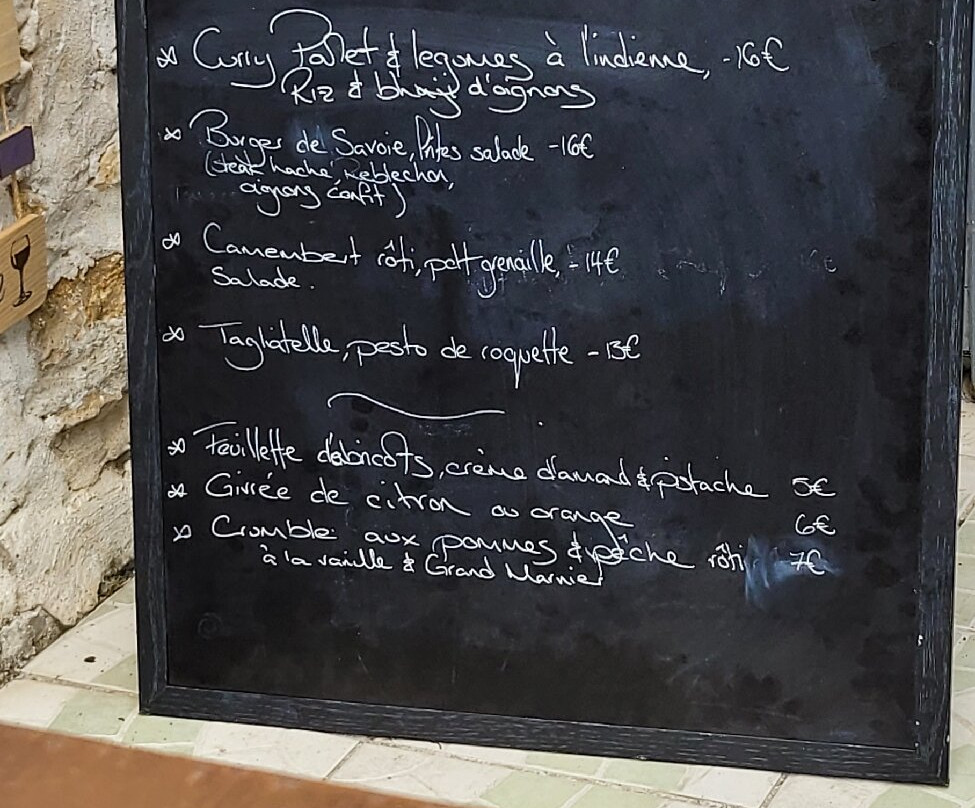 Curry Poulet & legumes à l'indienne, -16€
Riz & bhaji d'oignons
Burger de Savoie, frites salade -16€
(steak haché, Reblechon,
oignons confit)
Camembert rôti, patt grenaille, - 14€
Salade.
Tagliatelle, pesto de roquette - 13€
Feuillette d'abricots, crème d'amand & pistache 5€
Givrée de citron ou orange 6€
Crumble aux pommes & pêche rôti 7€
à la vanille & Grand Marnier